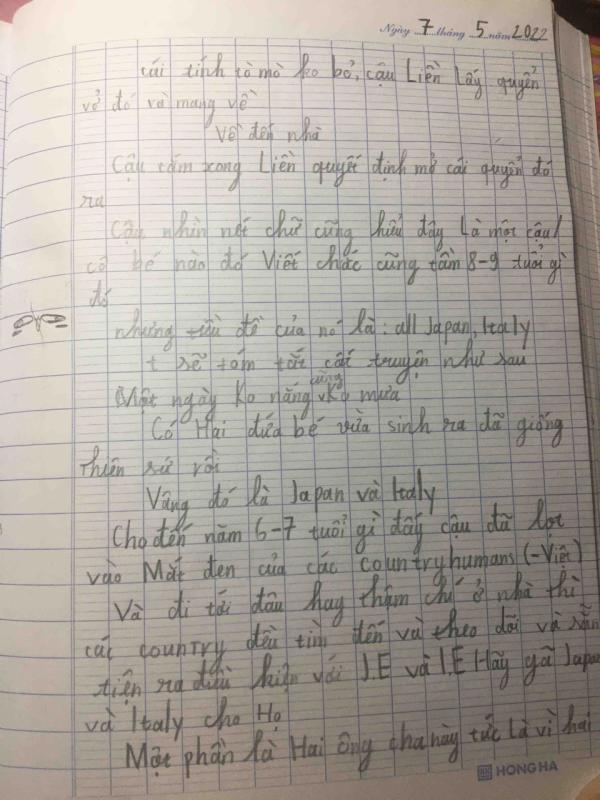 Ngày 7 tháng 5 năm 2022
cái tính tò mò ko bỏ, cậu Liền lấy quyển
vở đó và mang về
Về đến nhà
Cậu tắm xong Liền quyết định mở cái quyển đó
ra
Cậu nhìn nét chữ cũng hiểu đây là một cậu/
cô bé nào đó Viết chắc cũng tầm 8-9 tuổi gì
đó
nhưng tiêu đề của nó là: all Japan, Italy
t sẽ tóm tắt cốt truyện như sau
Một ngày Ko nắng cũng Ko mưa
Có Hai đứa bé vừa sinh ra đã giống
thiên sứ rồi
Vâng đó là Japan và Italy
Cho đến năm 6-7 tuổi gì đấy cậu đã lọt
vào Mắt đen của các countryhumans (-Việt)
Và đi tới đâu hay thậm chí ở nhà thì
các country đều tìm đến và theo dõi và sẵn
tiện ra điều kiện với J.E và I.E Hãy gã Japan
và Italy cho Họ
Một phần là Hai ông cha này tức là vì hai
HONG HA